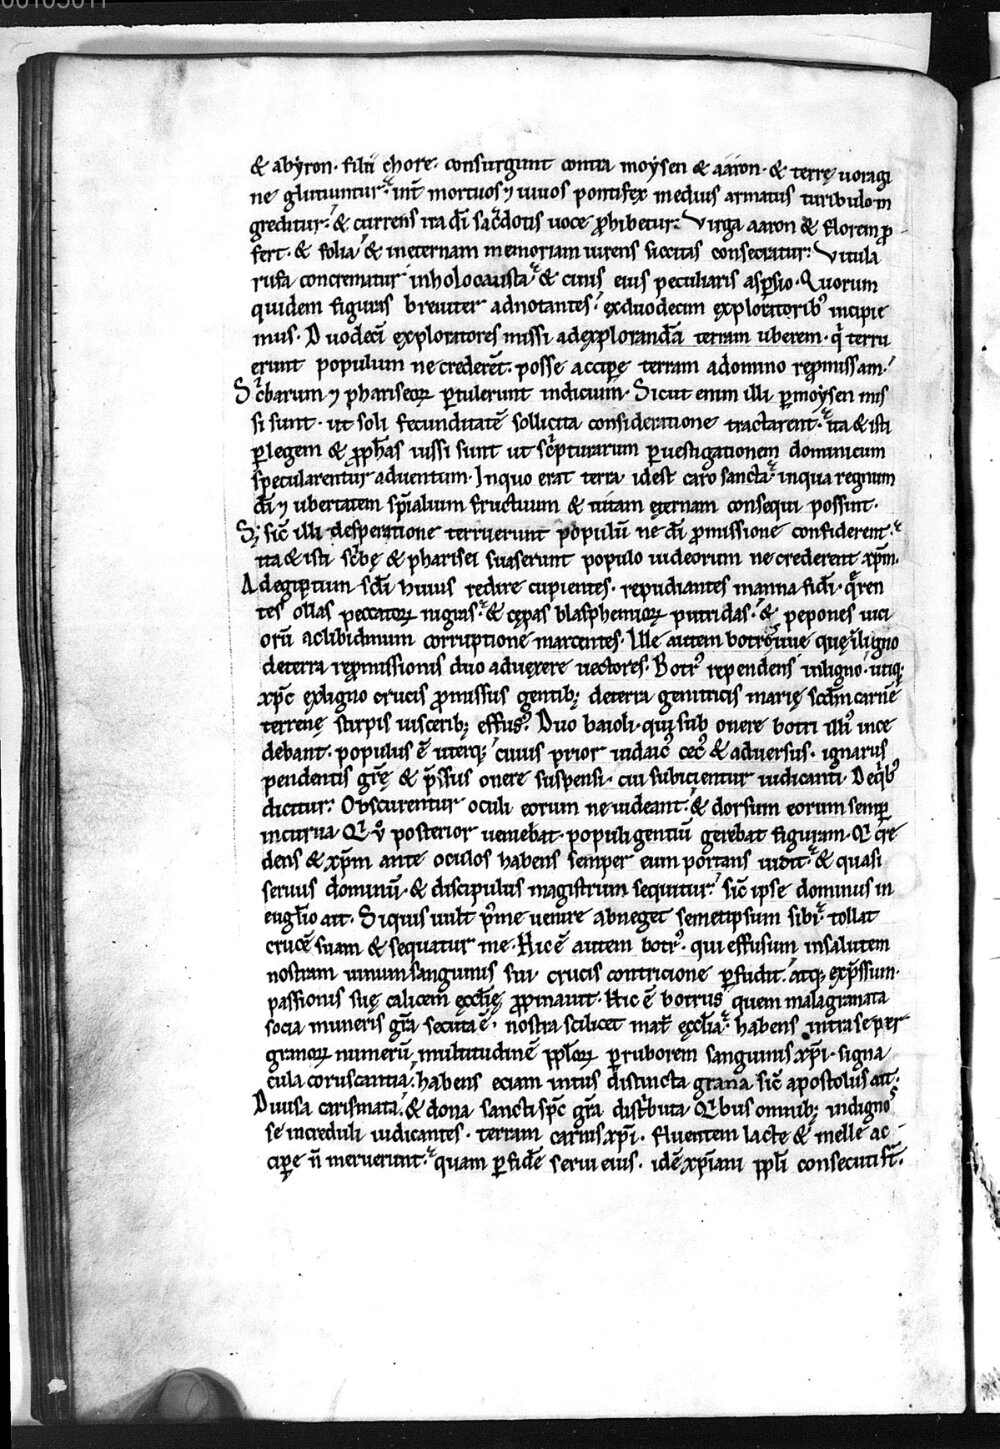 & abyron· filii chore· consurgunt contra moysen & aaron· & terrę uoragi
ne glutiuntur· int̄ mortuos ⁊ uiuos pontifex medius armatus turibulo in
greditur· & currens ira dī sac̄dotis uoce ꝓhibetur· Virga aaron & florem ꝓ
fert· & folia & in eternam memoriam uirens siccitas consecratur· Vitula
rufa concrematur in holocausta· & cinis eius peculiaris asꝑsio· Quorum
quidem figuras breuiter adnotantes· ex duodecim exploratoribꝰ incipie
mus· Duodeci exploratores missi ad explorandā terram uberem· q̄ terru
erunt populum ne crederēt· posse acciꝑe terram a domino reꝓmissam·
Sc̄barum ⁊ phariseoꝝ ꝑtulerunt indicium· Sicut enim illi ꝑ moysen mis
si sunt· ut soli fecunditatē sollicita consideratione tractarent· ita & isti
ꝑ legem & ꝓph̄as iussi sunt ut sc̄pturarum ꝑuestigationem dominicum
specularentur aduentum· In quo erat terra· idest caro sancta· in qua regnum
dī ⁊ ubertatem sp̄alium fructuum & uitam ęternam consequi possint·
S; sic̄ illi desperatione terruerunt populū ne dī ꝓmissione confiderent·
ita & isti sc̄bę & pharisei suaserunt populo iudeorum ne crederent xp̄m·
Ad egiptium scd̄i huius redire cupientes· repudiantes manna fidi· q̄ren
tes ollas peccatoꝝ nigras· & cępas blasphemioꝝ putridas· & pepones uici
orū ac libidinum corruptione marcentes· Ille autem botrus uue quę in ligno
de terra reꝓmissionis duo aduexere uectores· Botrꝰ rependens in ligno· utiqꝫ
xp̄c ex ligno crucis ꝓmissus gentibꝫ de terra genitricis marię scd̄m carnē
terrenę stirpis uisceribꝫ effusꝰ· Duo baioli· qui sub onere botri illiꝰ ince
debant· populus ē uterqꝫ cuius prior iudaicꝰ cecꝰ & aduersus· ignarus
pendentis gr̄ę & p̄ssus onere suspensi· cui subicientur iudicanti· De qͥbꝰ
dicitur· Obscurentur oculi eorum ne uideant· & dorsum eorum semꝑ
incurua· Qͥ ů posterior ueniebat· populi gentiū gerebat figuram· Qͥ cre
dens & xp̄m ante oculos habens semper eum portans uidit· & quasi
seruus dominū· & discipulus magistrum sequitur· sic̄ ipse dominus in
eugl̄io ait· Siquis uult p̄ me uenire abneget semetipsum sibi· tollat
crucē suam & sequatur me· Hic ē autem botrꝰ· qui effusum in salutem
nostram uinum sanguinis sui· crucis contricione ꝑfudit· atqꝫ exp̄ssum·
passionis suę calicem ęccl̄ię ꝓpinauit· Hic ē botrus quem malagranata
socia muneris gr̄a secuta ē· nostra scilicet mat̄ ęccl̄ia· habens intra se per
granoꝝ numerū multitudinē ppl̄oꝝ ꝑ ruborem sanguinis xp̄i· signa
cula coruscantia· habens eciam intus distincta grana sic̄ apostolus ait·
Diuisa carismata· & dona sancti sp̄c gr̄a dist̄buta· Qͥbus omnibꝫ indignoˢ
se increduli iudicantes· terram carnis xp̄i· fluentem lacte & melle ac
ciꝑe n̄ meruerunt· quam ꝑ fidē serui eius· idē xp̄iani ppl̄i consecuti st̄·